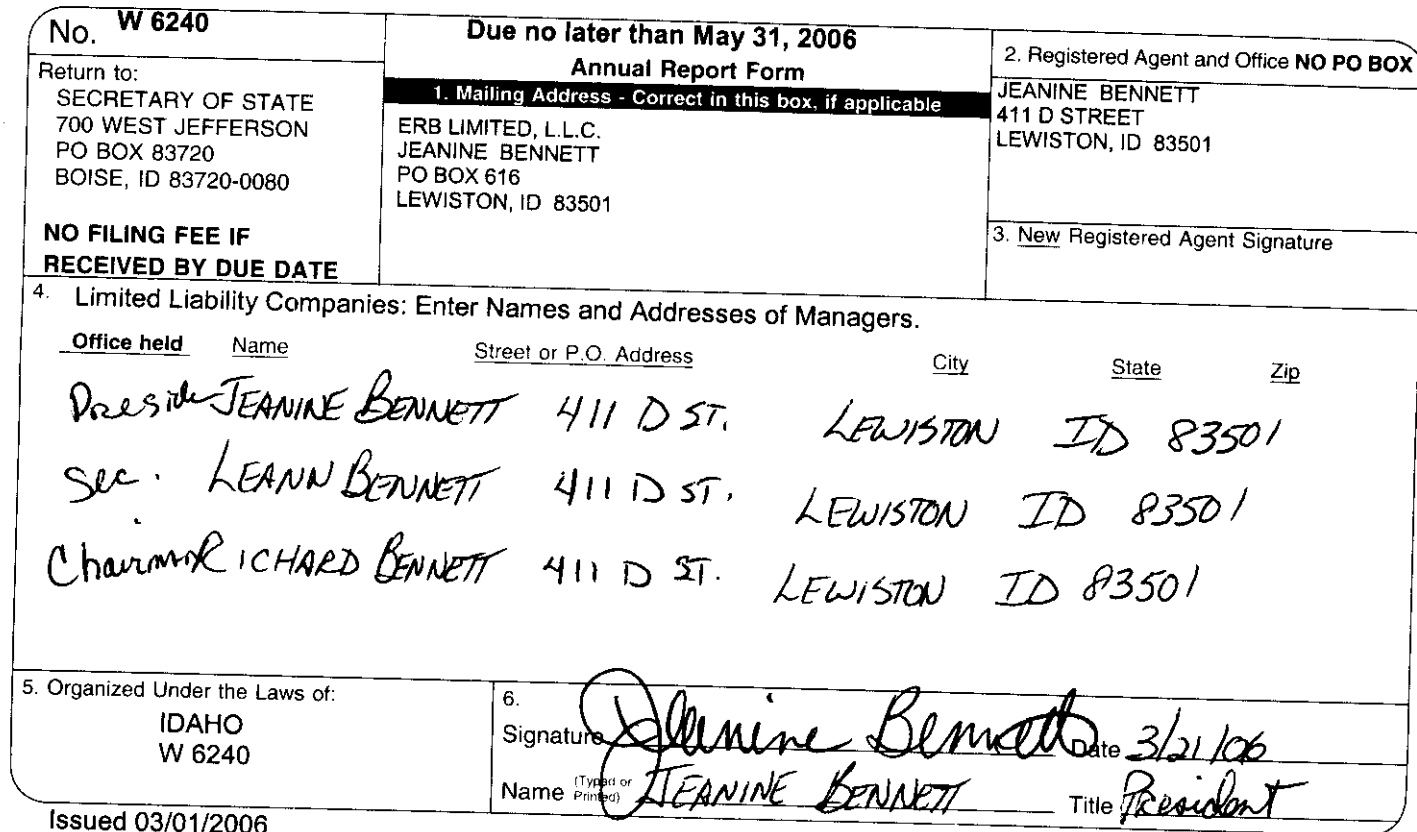 No. W 6240
Return to:
SECRETARY OF STATE
700 WEST JEFFERSON
PO BOX 83720
BOISE, ID 83720-0080
NO FILING FEE IF
RECEIVED BY DUE DATE
Due no later than May 31, 2006
Annual Report Form
1. Mailing Address - Correct in this box, if applicable
ERB LIMITED, L.L.C.
JEANINE BENNETT
PO BOX 616
LEWISTON, ID 83501
2. Registered Agent and Office NO PO BOX
JEANINE BENNETT
411 D STREET
LEWISTON, ID 83501
3. New Registered Agent Signature
4. Limited Liability Companies: Enter Names and Addresses of Managers.
Office held Name Street or P.O. Address City State Zip
JEANINE BENNETT 411 D ST. LEWISTON ID 83501
Sec. LEANN BENNETT 411 D ST. LEWISTON ID 83501
RICHARD BENNETT 411 D ST. LEWISTON ID 83501
5. Organized Under the Laws of:
IDAHO
W 6240
6.
Signature Jeanine Bennett Date 3/21/06
Name (Typed or Printed) JEANINE BENNETT Title President
Issued 03/01/2006